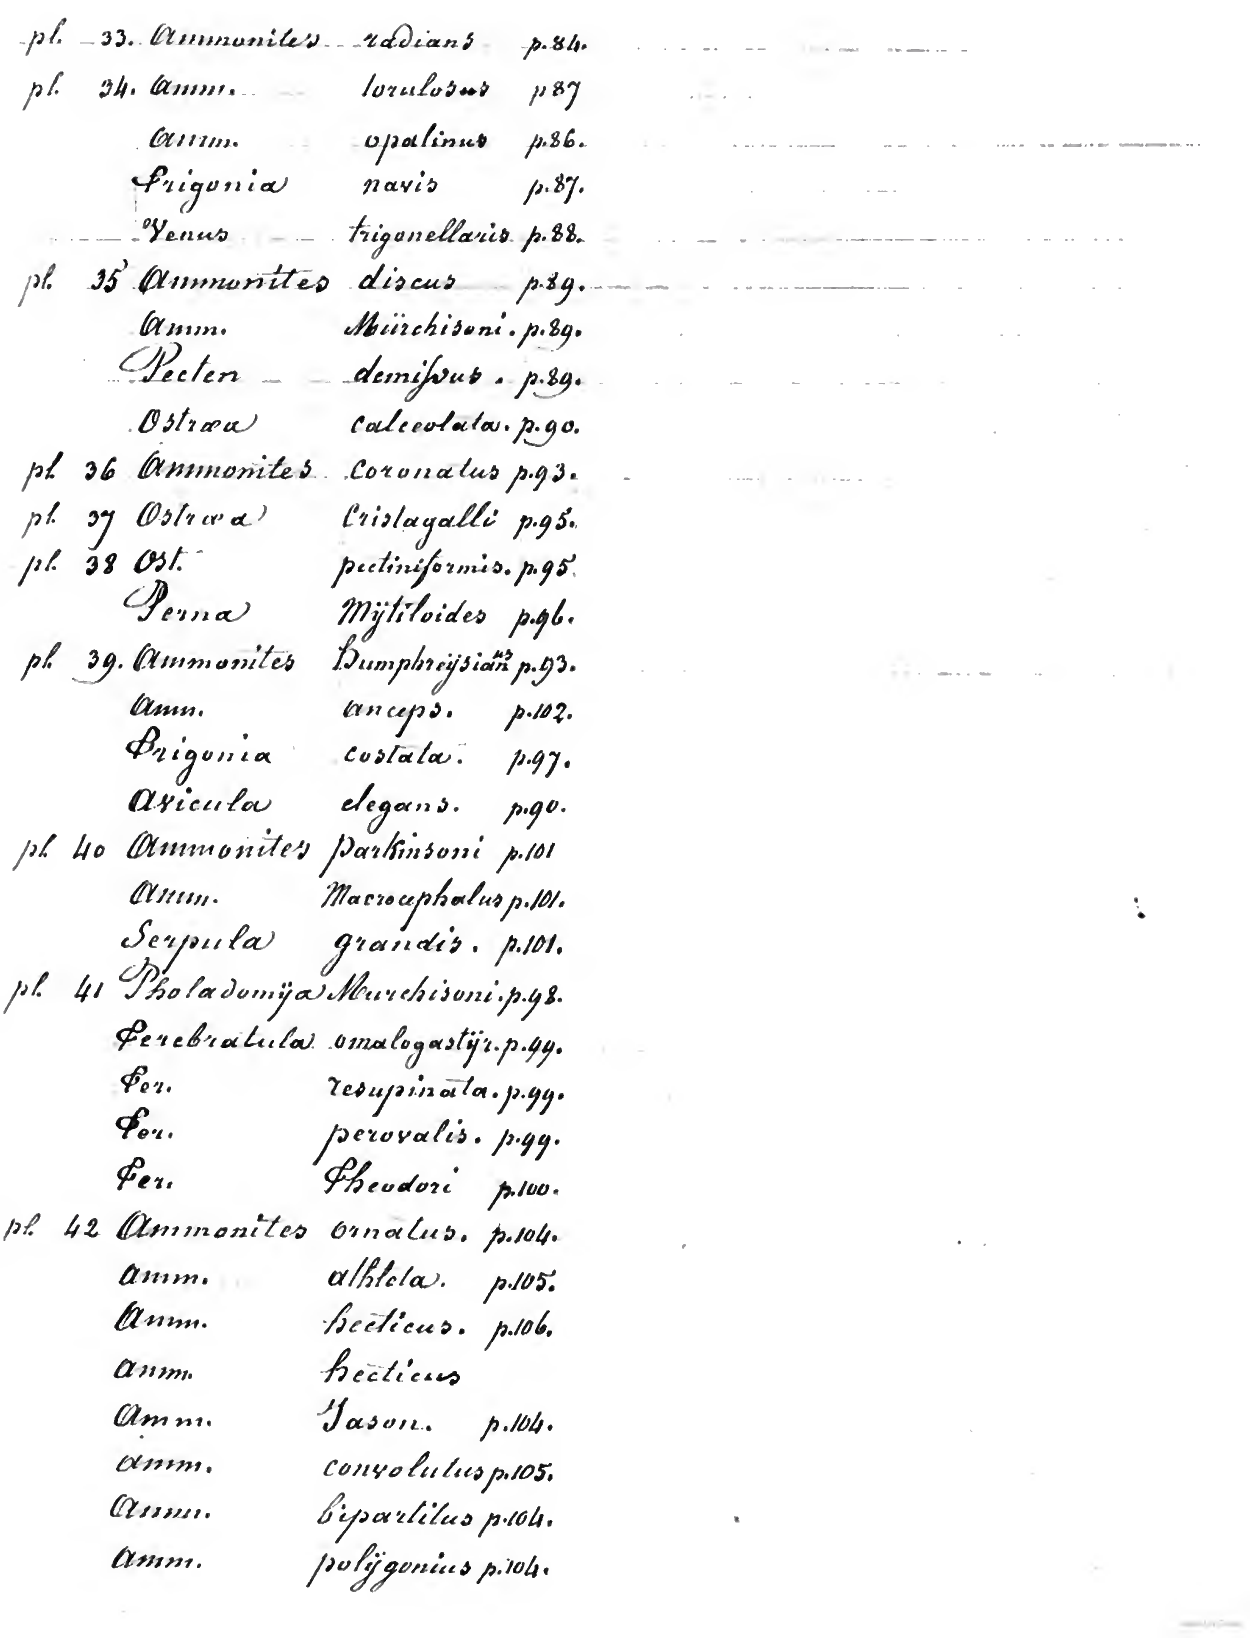 pl. 33. Ammonites radians p.84.
pl. 34. Amm. torulosus p 87
Amm. opalinus p.86.
Trigonia navis p.87.
Venus trigonellaris p.88.
pl. 35 Ammonites discus p.89.
Amm. Mürchisoni. p.89.
Pecten demiſsus. p.89.
Ostræa calceolata. p.90.
pl. 36 Ammonites coronatus p.93.
pl. 37 Ostræa Cristagalli p.95.
pl. 38 Ost. pectiniformis. p.95.
Perna Mÿtiloides p.96.
pl. 39. Ammonites Humphreÿsianus p.93.
Amm. anceps. p.102.
Trigonia costata. p.97.
Avicula elegans. p.90.
pl. 40 Ammonites Parkinsoni p.101
Amm. Macrocephalus p.101.
Serpula grandis. p.101.
pl. 41 Pholadomÿa Murchisoni. p.98.
Terebratula omalogastÿr. p.99.
Ter. resupinata. p.99.
Ter. perovalis. p.99.
Ter. Theodori p.100.
pl. 42 Ammonites ornatus. p.104.
Amm. athleta. p.105.
Amm. hecticus. p.106.
Amm. hecticus
Amm. Jason. p.104.
Amm. convolutus p.105.
Amm. bipartitus p.104.
Amm. polÿgonius p.104.